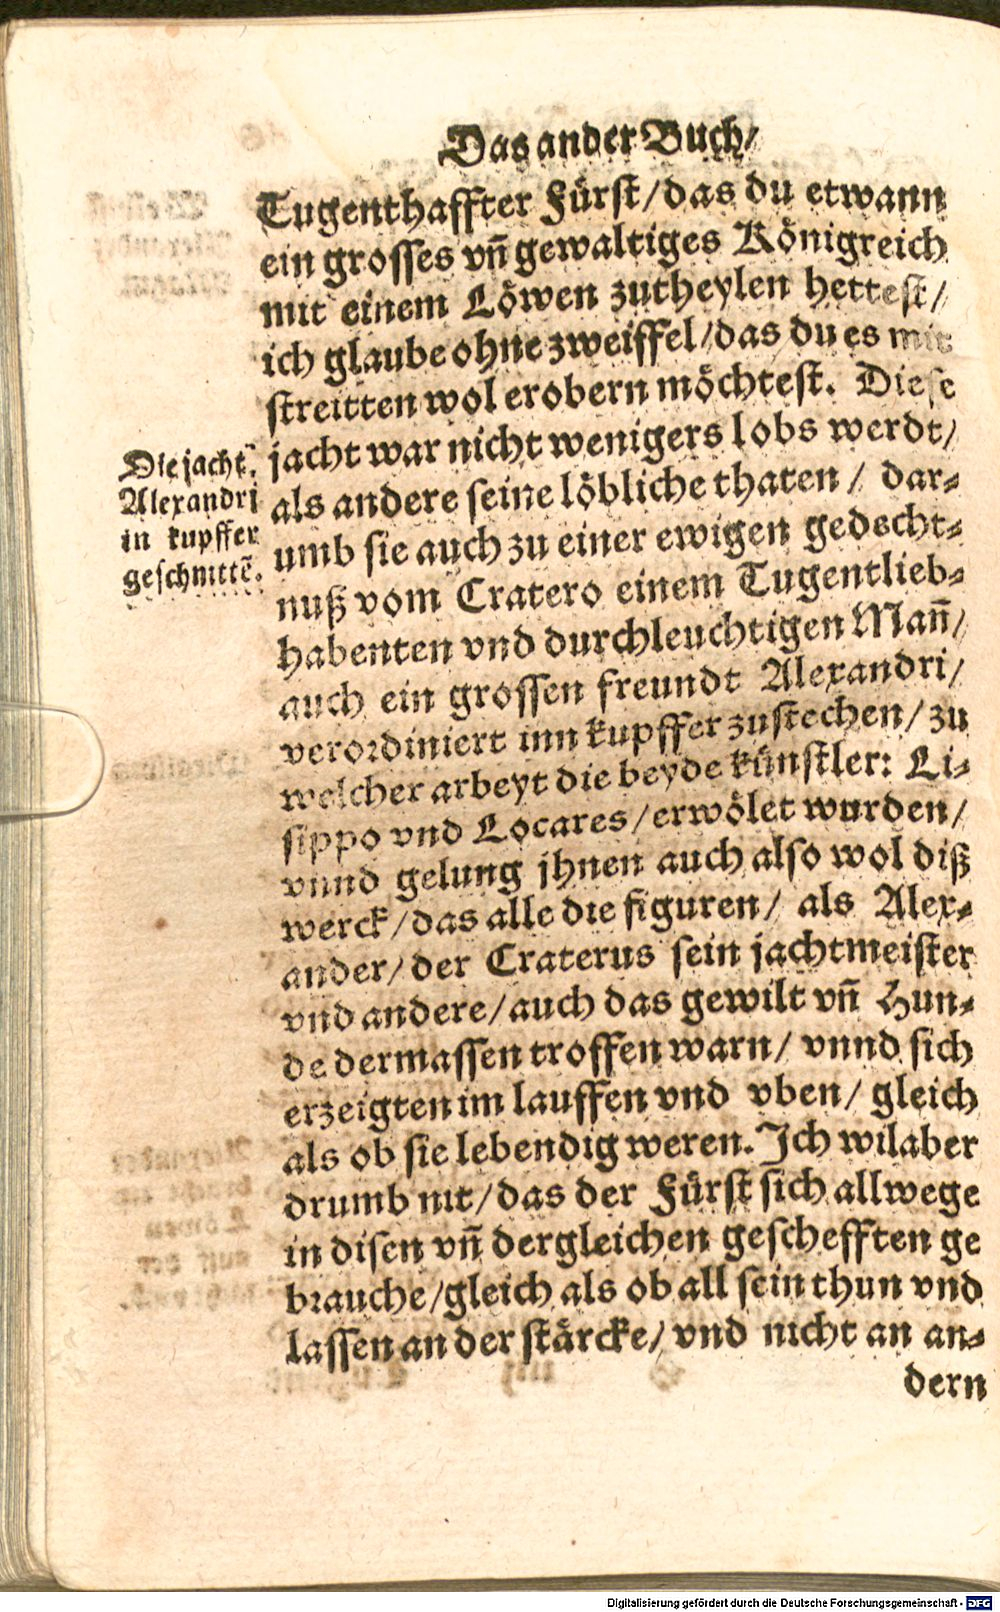 Das ander Buch/
Tugenthaffter Fürst/das du etwann
ein grosses vn̄ gewaltiges Königreich
mit einem Löwen zutheylen hettest/
ich glaube ohne zweiffel/das du es mit
streitten wol erobern möchtest. Diese
jacht war nicht wenigers lobs werdt/
als andere seine löbliche thaten/ dar-
umb sie auch zu einer ewigen gedecht-
nuß vom Cratero einem Tugentlieb-
habenten vnd durchleuchtigen Man̄/
auch ein grossen freundt Alexandri/
verordiniert inn kupffer zustechen/ zu
welcher arbeyt die beyde künstler: Li-
sippo vnd Locares/erwölet wurden/
vnnd gelung jhnen auch also wol diß
werck/das alle die figuren/ als Alex-
ander/ der Craterus sein jachtmeister
vnd andere/auch das gewilt vn̄ Hun-
de dermassen troffen warn/ vnnd sich
erzeigten im lauffen vnd vben/ gleich
als ob sie lebendig weren. Ich wil aber
drumb nit/das der Fürst sich allwege
in disen vn̄ dergleichen geschefften ge
brauche/gleich als ob all sein thun vnd
lassen an der stärcke/ vnd nicht an an-
dern
Die jacht
Alexandri
in kupffer
geschnittē.
Digitalisierung gefördert durch die Deutsche Forschungsgemeinschaft - DFG